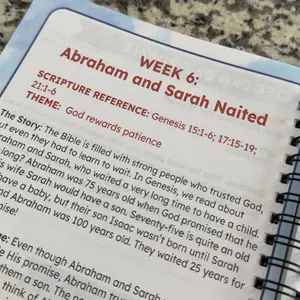 WEEK 6:
Abraham and Sarah Naited
SCRIPTURE REFERENCE: Genesis 15:1-6; 17:15-19;
21:1-6
THEME: God rewards patience
The Story: The Bible is filled with strong people who trusted God,
but even they had to learn to wait. In Genesis, we read about
raham and Sarah, who waited a very long time to have a child.
long? Abraham was 75 years old when God promised that he
is wife Sarah would have a son. Seventy-five is quite an old
have a baby, but their son Isaac wasn't born until Sarah
nd Abraham was 100 years old. They waited 25 years for
mise!
Even though Abraham and Sarah
His promise, Abraham
them a son. The
think of